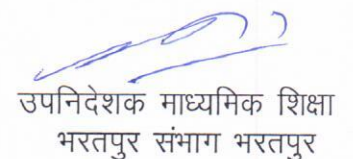 उपनिदेशक माध्यमिक शिक्षा
भरतपुर संभाग भरतपुर